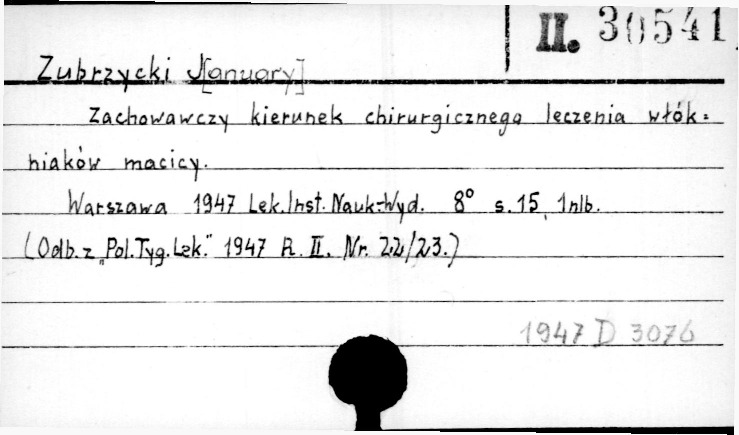 II. 30541
Zubrzycki J[anuary]
Zachowawczy kierunek chirurgicznego leczenia włók=
niaków macicy.
Warszawa 1947 Lek.Inst.Nauk-Wyd. 8° s.15, 1nlb.
(Odb.z „Pol.Tyg.Lek." 1947 R. II. Nr. 22/23.)
1947 D 3076